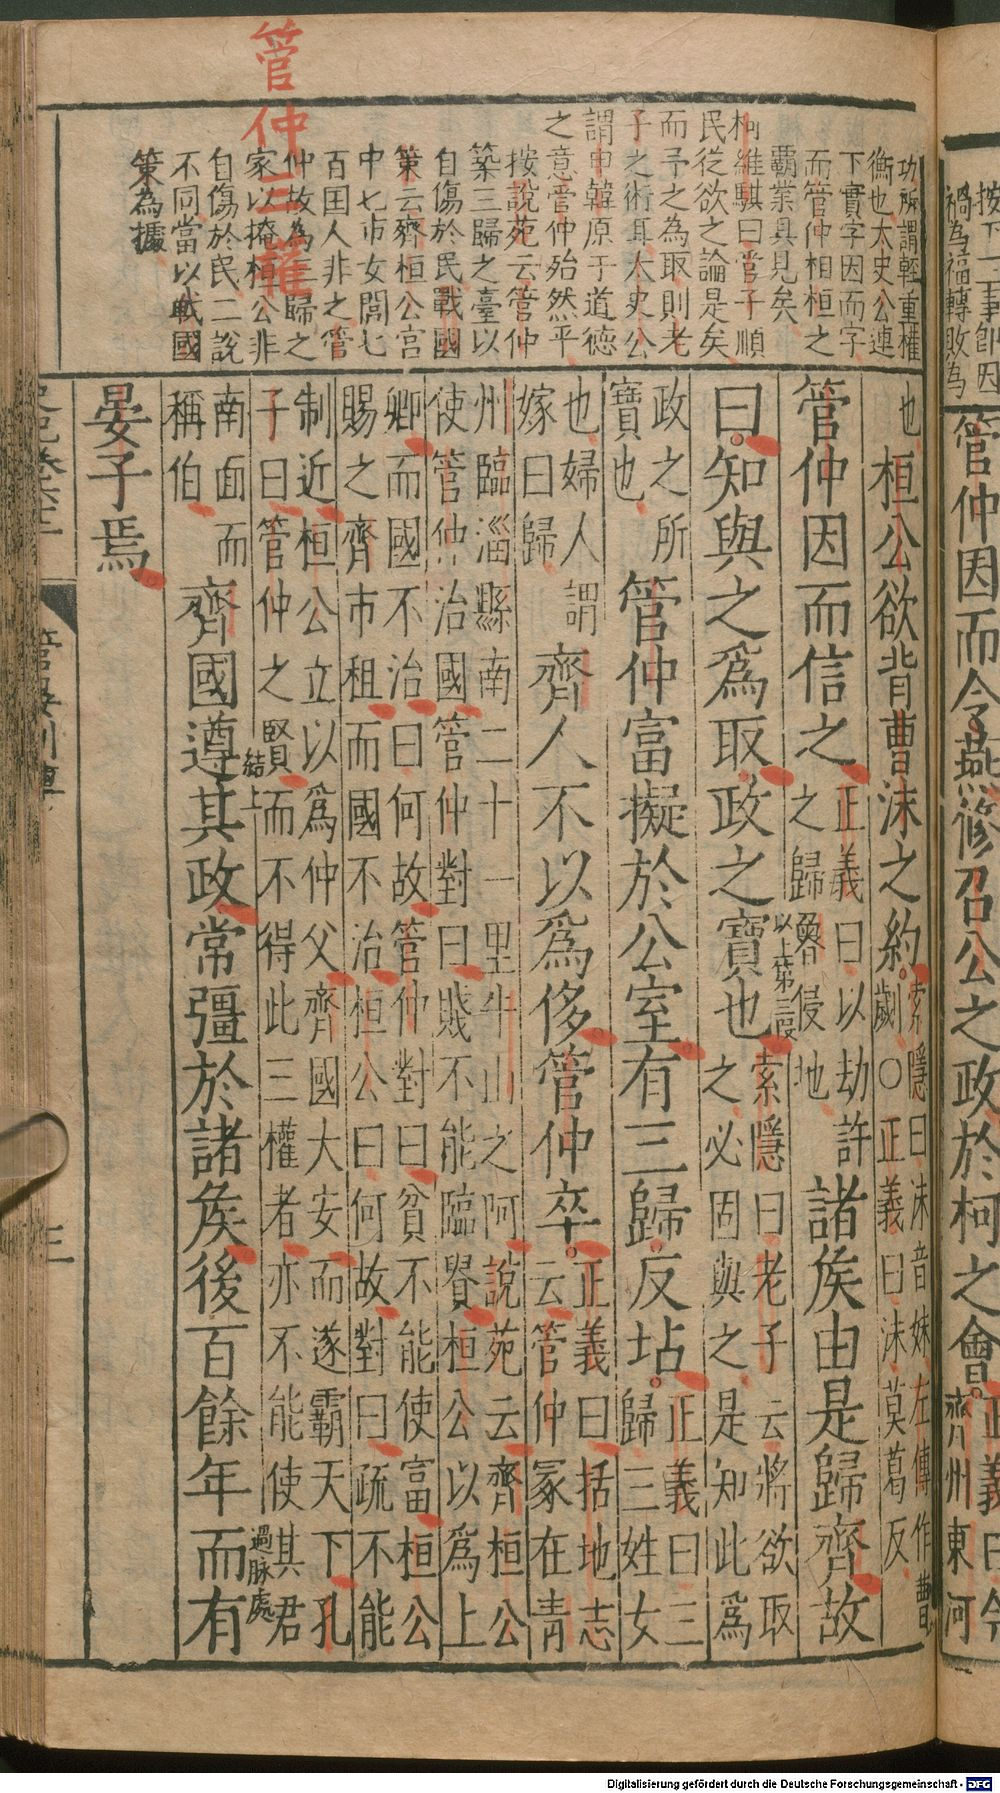 按下二事即因
禍為福轉敗為
管仲因而令燕修召公之政於柯之會。
正義曰今
齊州東河
管仲三權
功所謂輕重權
衡也太史公連
下實字因而字
而管仲相桓之
霸業具見矣
柯維騏曰管子順
民從欲之論是矣
而予之為取則老
子之術耳太史公
謂申韓原于道德
之意管仲殆然乎
按說苑云管仲
築三歸之臺以
自傷於民戰國
策云齊桓公宮
中七市女閭七
百国人非之管
仲故為三歸之
家以掩桓公非
自傷於民二說
不同當以戰國
策為據
也桓公欲背曹沫之約。索隱曰沫音妹左傳作曹
劌○正義曰沫莫葛反
管仲因而信之正義曰以劫許
之歸魯侵地諸矦由是歸齊故
曰。知與之爲取。政之寶也索隱曰老子云將欲取
之必固與之是知此爲
以上第三段
政之所
寶也管仲富擬於公室有三歸。反坫。正義曰三
歸三姓女
也婦人謂
嫁曰歸齊人不以爲侈管仲卒。正義曰括地志
云管仲冢在青
州臨淄縣南二十一里牛山之阿說苑云齊桓公
使管仲治國管仲對曰賤不能臨貴桓公以爲上
卿而國不治曰何故管仲對曰貧不能使富桓公
賜之齊市租而國不治桓公曰何故對曰疏不能
制近桓公立以爲仲父齊國大安而遂霸天下孔
子曰管仲之賢而不得此三權者亦不能使其君
結上
過脉處
南面而
稱伯齊國遵其政常彊於諸矦後百餘年而有
晏子焉
三